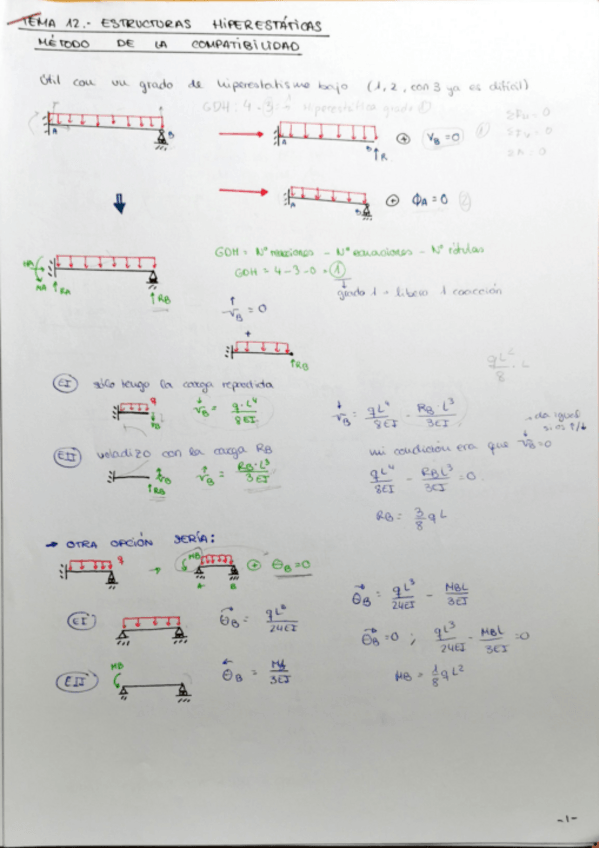 TEMA 12.- ESTRUCTURAS HIPERESTÁTICAS
MÉTODO DE LA COMPATIBILIDAD
Útil con un grado de hiperestatismo bajo (1, 2, con 3 ya es difícil)
GDH: 4 - 3 = 1 Hiperestática grado 1
ΣFH = 0
ΣFV = 0
A B
A B ↑R ⊕ VB = 0 ①
A B ⊕ ϕA = 0 ②
HA MA ↑RA ↑RB
GDH = Nº reacciones - Nº ecuaciones - Nº rótulas
GDH = 4 - 3 - 0 = ①
grado 1 → libero 1 coacción
↑VB = 0
+
↑RB
qL²/8 · L
EI sólo tengo la carga repartida
q ↓VB ↓VB = q·L⁴/8EI
↓VB = qL⁴/8EI - RB·L³/3EI
→ da igual si es ↑/↓
EII voladizo con la carga RB
↑VB ↑RB ↑VB = RB·L³/3EI
mi condición era que ↓VB = 0
qL⁴/8EI - RBL³/3EI = 0
RB = 3/8 qL
→ OTRA OPCIÓN SERÍA:
q → MB A B ⊕ ΘB = 0
EI ΘB = qL³/24EI
ΘB = qL³/24EI - MBL/3EI
ΘB = 0 ; qL³/24EI - MBL/3EI = 0
EII MB ΘB = /3EI
MB = 1/8 qL²
-1-